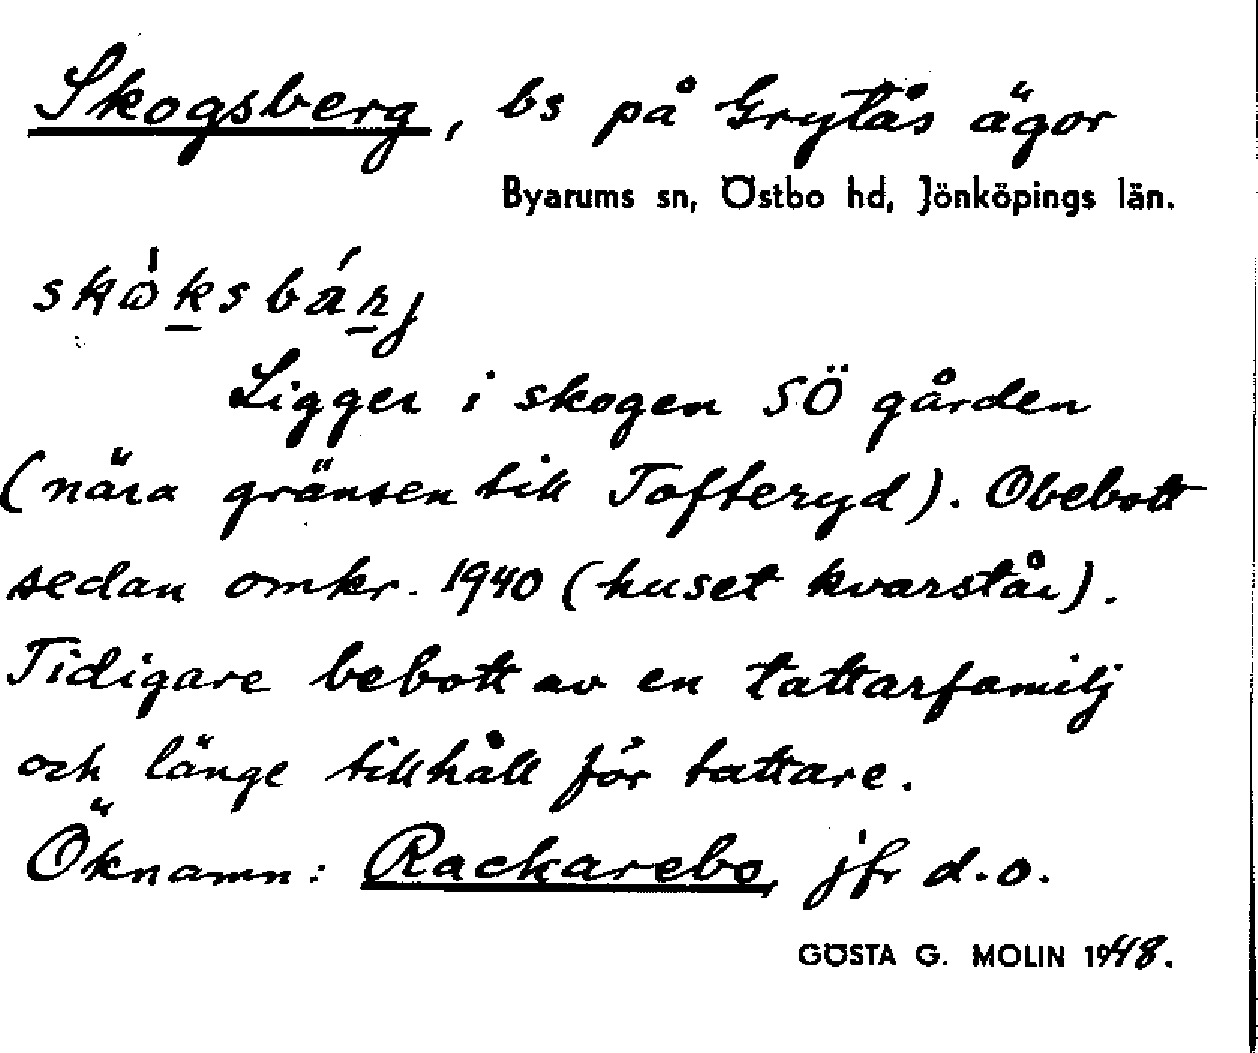 Skogsberg, bs på Grytås ägor
Byarums sn, Östbo hd, Jönköpings län.
Ligger i skogen SÖ gården
(nära gränsen till Tofteryd). Obebott
sedan omkr. 1940 (huset kvarstår).
Tidigare bebott av en tattarfamilj
och länge tillhåll för tattare.
Öknamn: Rackarebo, jfr d.o.
GÖSTA G. MOLIN 1948.